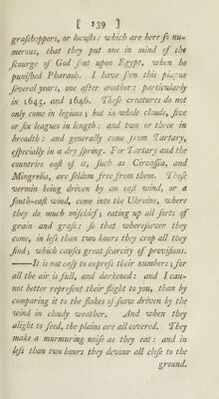 [ 139 ]
grashoppers, or locusts: which are here so nu-
merous, that they put one in mind of the
scourge of God sent upon Egypt, when he
punished Pharaoh. I have seen this plague
several years, one after another: particularly
in 1645, and 1646. These creatures do not
only come in legions; but in whole clouds, five
or six leagues in length: and two or three in
breadth: and generally come from Tartary,
especially in a dry spring. For Tartary and the
countries east of it, such as Circassia, and
Mingrelia, are seldom free from them. These
vermin being driven by an east wind, or a
south-east wind, come into the Ukrain, where
they do much mischief; eating up all sorts of
grain and grass: so that wheresoever they
come, in less than two hours they crop all they
find; which causes great scarcity of provisions.
——It is not easy to express their numbers; for
all the air is full, and darkened: and I can-
not better represent their flight to you, than by
comparing it to the flakes of snow driven by the
wind in cloudy weather. And when they
alight to feed, the plains are all covered. They
make a murmuring noise as they eat: and in
less than two hours they devour all close to the
ground.